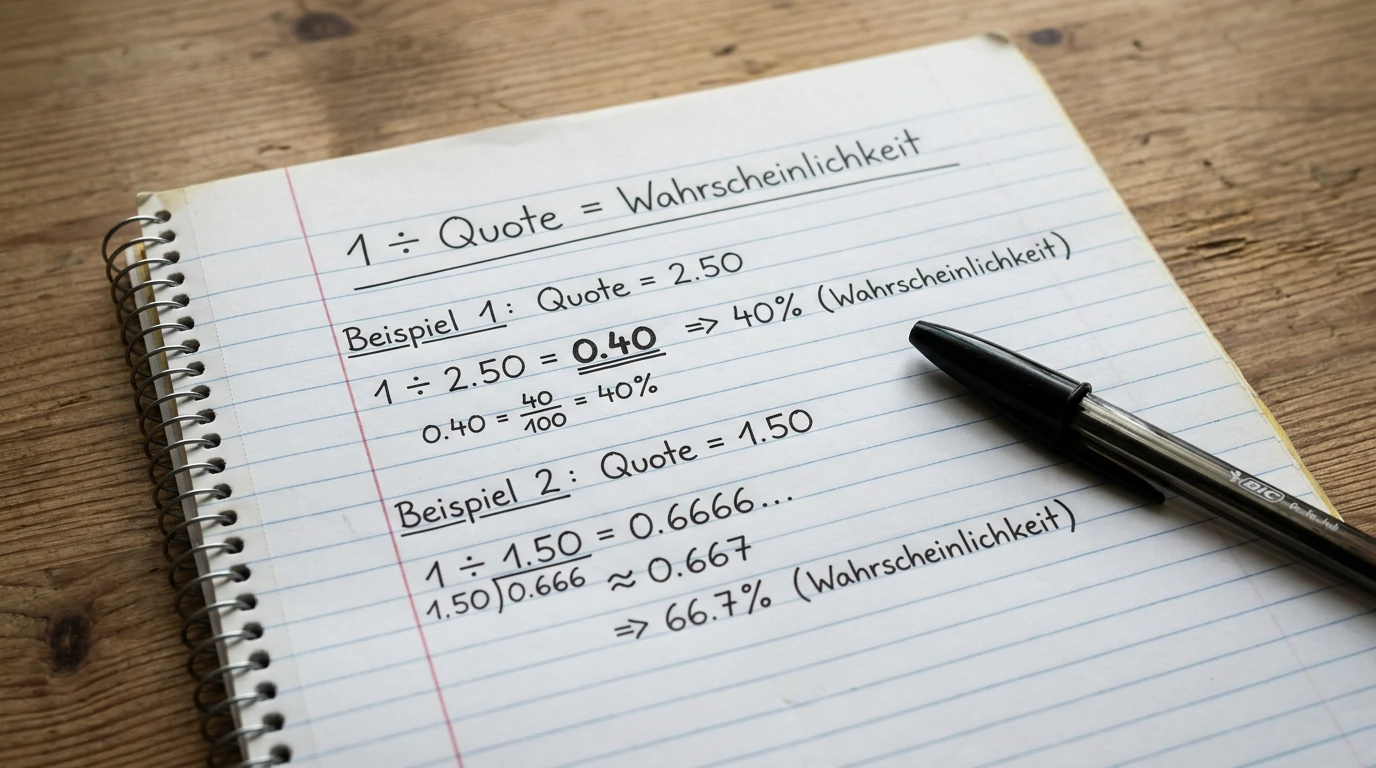 1 ÷ Quote = Wahrscheinlichkeit
Beispiel 1: Quote = 2.50
1 ÷ 2.50 = 0.40 => 40% (Wahrscheinlichkeit)
0.40 = 40/100 = 40%
Beispiel 2: Quote = 1.50
1 ÷ 1.50 = 0.6666...
1.50)0.666 ≈ 0.667
=> 66.7% (Wahrscheinlichkeit)
BIC